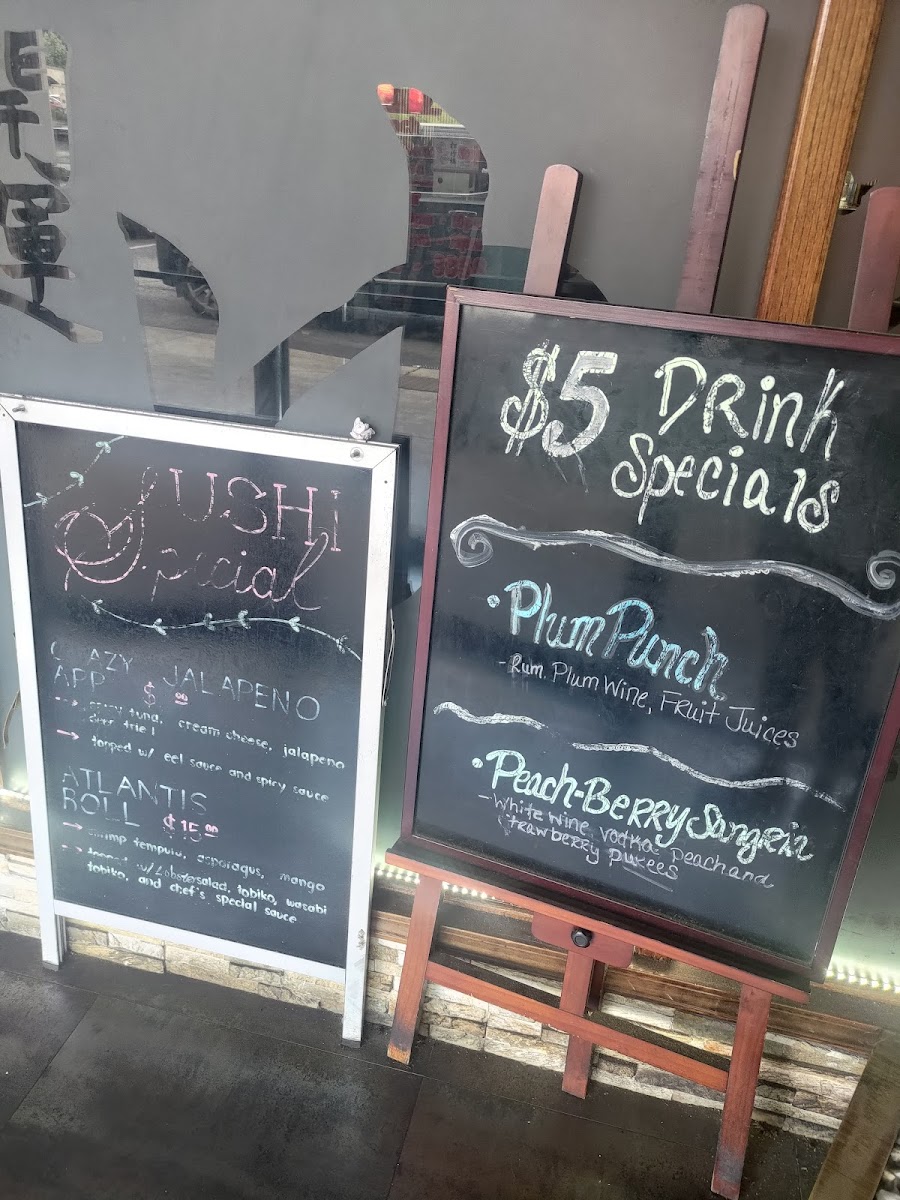 SUSHi
Special
JALAPENO
APP $ 00
tuna, cream cheese, jalapeno
→ topped w/ eel sauce and spicy sauce
ATLANTIS
ROLL $15.00
→ shrimp tempura, asparagus, mango
→ topped w/ Lobster salad, tobiko, wasabi
tobiko, and chef's special sauce
$5 DRink
Specials
• Plum Punch
- Rum, Plum Wine, Fruit Juices
• Peach-Berry Sangria
- White Wine, vodka, peach and
strawberry purees
運